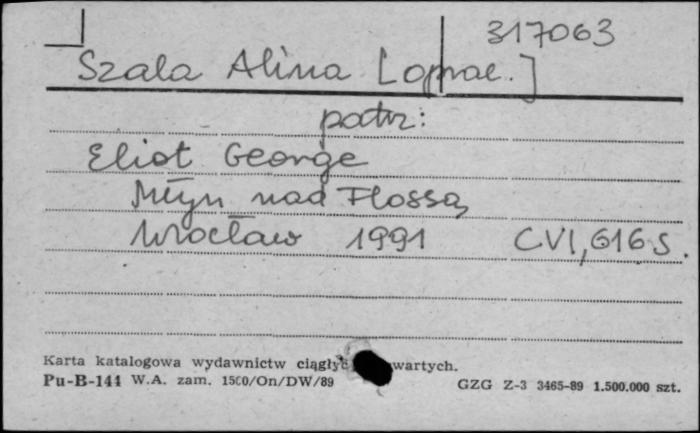 317063
Szala Alina [oprac.]
patrz:
Eliot George
Młyn nad Flossą
Wrocław 1991 CVI, 616 s.
Karta katalogowa wydawnictw ciągłych wartych.
Pu-B-144 W.A. zam. 1500/On/DW/89 GZG Z-3 3465-89 1.500.000 szt.